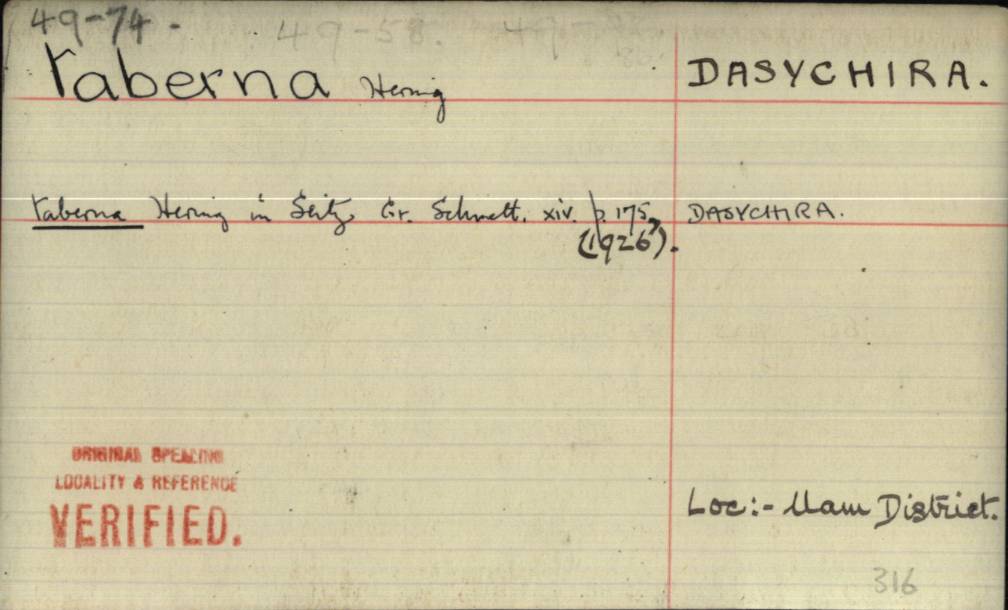 49-74.
49-58.
taberna Hering
DASYCHIRA.
taberna Hering in Seitz Gr. Schmett. xiv. p. 175,
(1926).
DASYCHIRA.
ORIGINAL SPELLING
LOCALITY & REFERENCE
VERIFIED.
Loc:- Uam District.
316